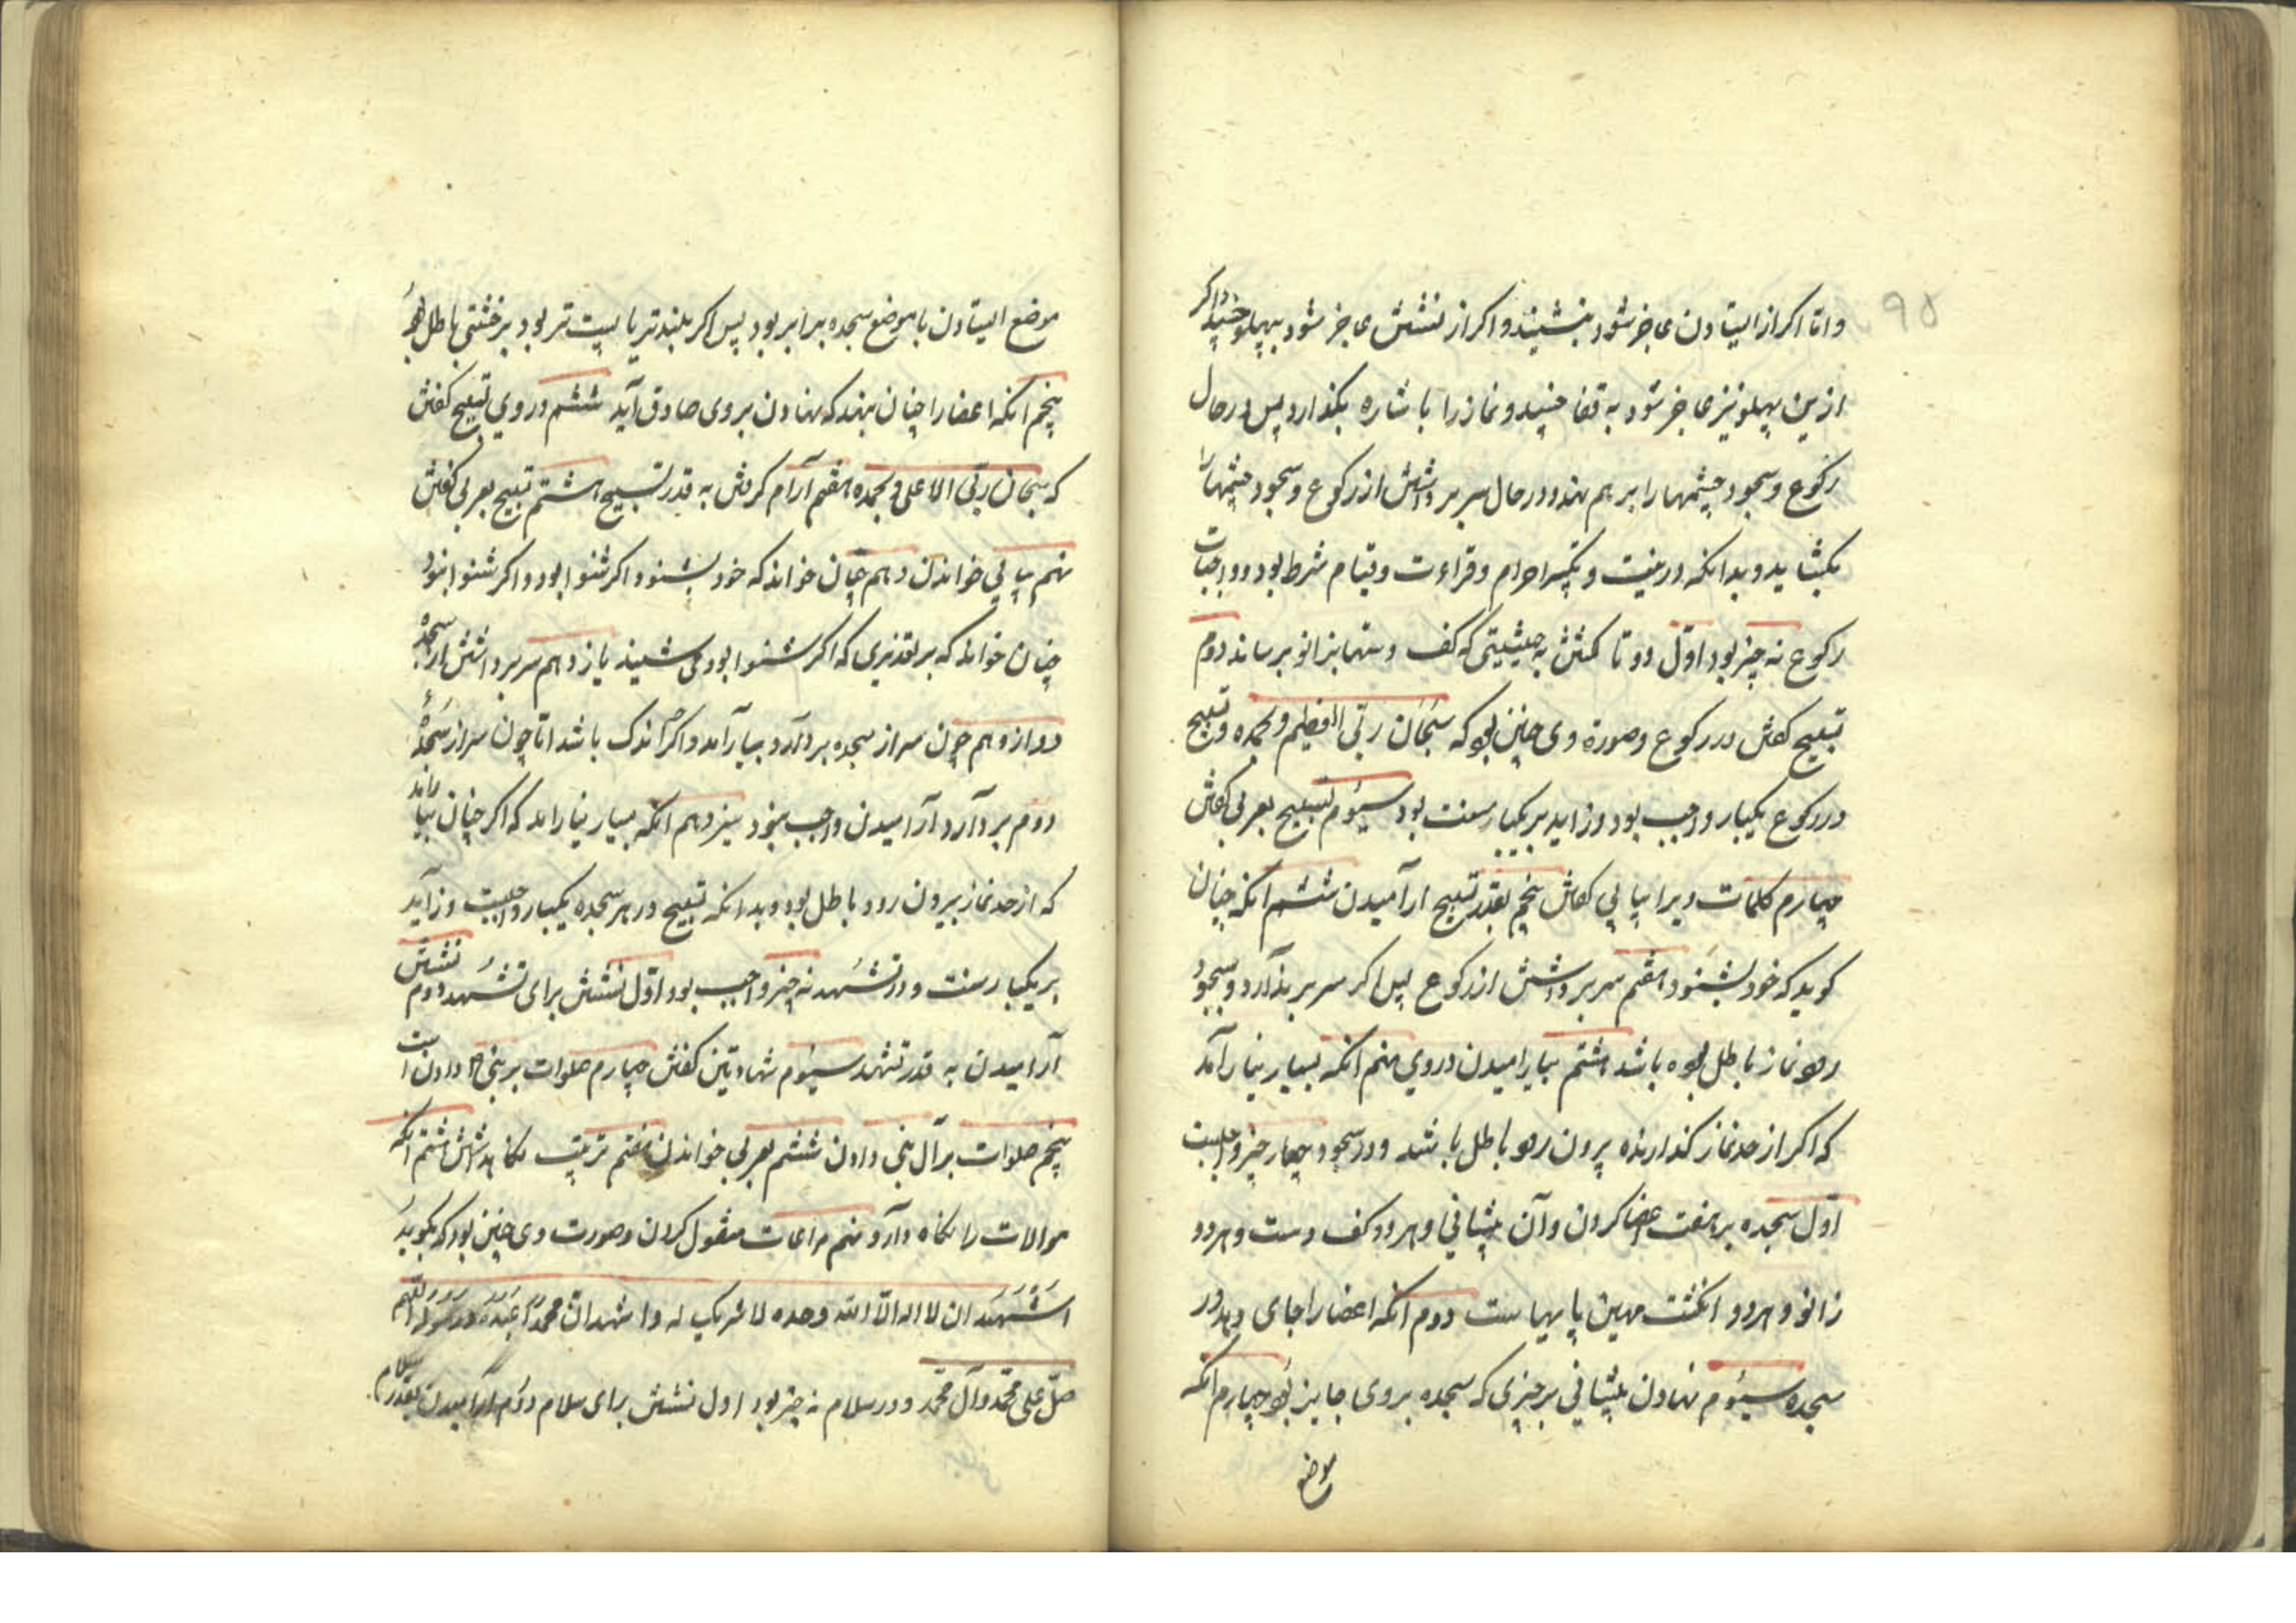 واما اکر از ایستادن عاجز شود بنشیند و اکر از نشستن عاجز شود بپهلو خسپد اکر
ازین پهلو نیز عاجز شود به قفا خسپد و نماز را باشاره بکذارد پس در حال
رکوع و سجود چشمها را بر هم نهد و در حال سر برداشتن از رکوع و سجود چشمها را
بکشاید و بدانکه در نیت و تکبیر احرام و قراءت و قیام شرط بود و واجبات
رکوع نه چیز بود اول دو تا کشتن به حیثیتی که کف دستها بزانو برساند دوم
تسبیح کفتن در رکوع و صورة وی چنین بود که سبحان ربی العظیم و بحمده و تسبیح
در رکوع یکبار واجب بود و زاید بر یکبار سنت بود سیوم تسبیح بعربی کفتن
چهارم کلمات ویرا پیاپی کفتن پنجم بقدر تسبیح ارآمیدن ششم انکه چنان
کوید که خود بشنود هفتم سر برداشتن از رکوع پس اکر سر بر ندارد و بسجود
رود نماز باطل بوده باشد هشتم بیارامیدن در وی نهم انکه بسیار نیارآمد
که اکر از حد نماز کذارنده بیرون رود باطل باشد و در سجود چهار چیز واجبست
اول سجده بر هفت اعضا کردن و آن پیشانی و هر دو کف دست و هر دو
زانو و هر دو انکشت مهین پایهاست دوم انکه اعضا را جای دهد در
سجده سیوم نهادن پیشانی بر چیزی که سجده بر وی جایز بود چهارم انکه
موضع
۹۵
موضع ایستادن با موضع سجده برابر بود پس اکر بلندتر یا پست تر بود بر خشتی باطل بود
پنجم انکه اعضا را چنان بنهد که نهادن بر وی صادق آید ششم در وی تسبیح کفتن
که سبحان ربی الاعلی و بحمده هفتم آرام کرفتن به قدر تسبیح هشتم تسبیح بعربی کفتن
نهم پیاپی خواندن دهم چنان خواند که خود بشنود اکر شنوا بود و اکر شنوا نبود
چنان خواند که بر تقدیری که اکر شنوا بود می شنید یازدهم سر برداشتن از سجده
دوازدهم چون سر از سجده بردارد بیارآمد و اکرچه اندک باشد اما چون سر از سجدهٔ
دوم بردارد آرامیدن واجب نبود سیزدهم انکه بسیار نیارامد که اکر چنان بیارامد
که از حد نماز بیرون رود باطل بود و بدانکه تسبیح در هر سجده یکبار واجبست و زاید
بر یکبار سنت و در تشهد نه چیز واجب بود اول نشستن برای تشهد دوم نشستن
آرامیدن به قدر تشهد سیوم شهادتین کفتن چهارم صلوات بر نبی دادن است
پنجم صلوات بر آل نبی دادن ششم بعربی خواندن هفتم ترتیب نکاهداشتن هشتم انکه
موالات را نکاه دارد نهم مراعات منقول کردن و صورت وی چنین بود که بکوید
اشهد ان لا اله الا الله وحده لا شریک له و اشهد ان محمدا عبده و رسوله اللهم
صل علی محمد و آل محمد و در سلام نه چیز بود اول نشستن برای سلام دوم آرامیدن بقدر سلام